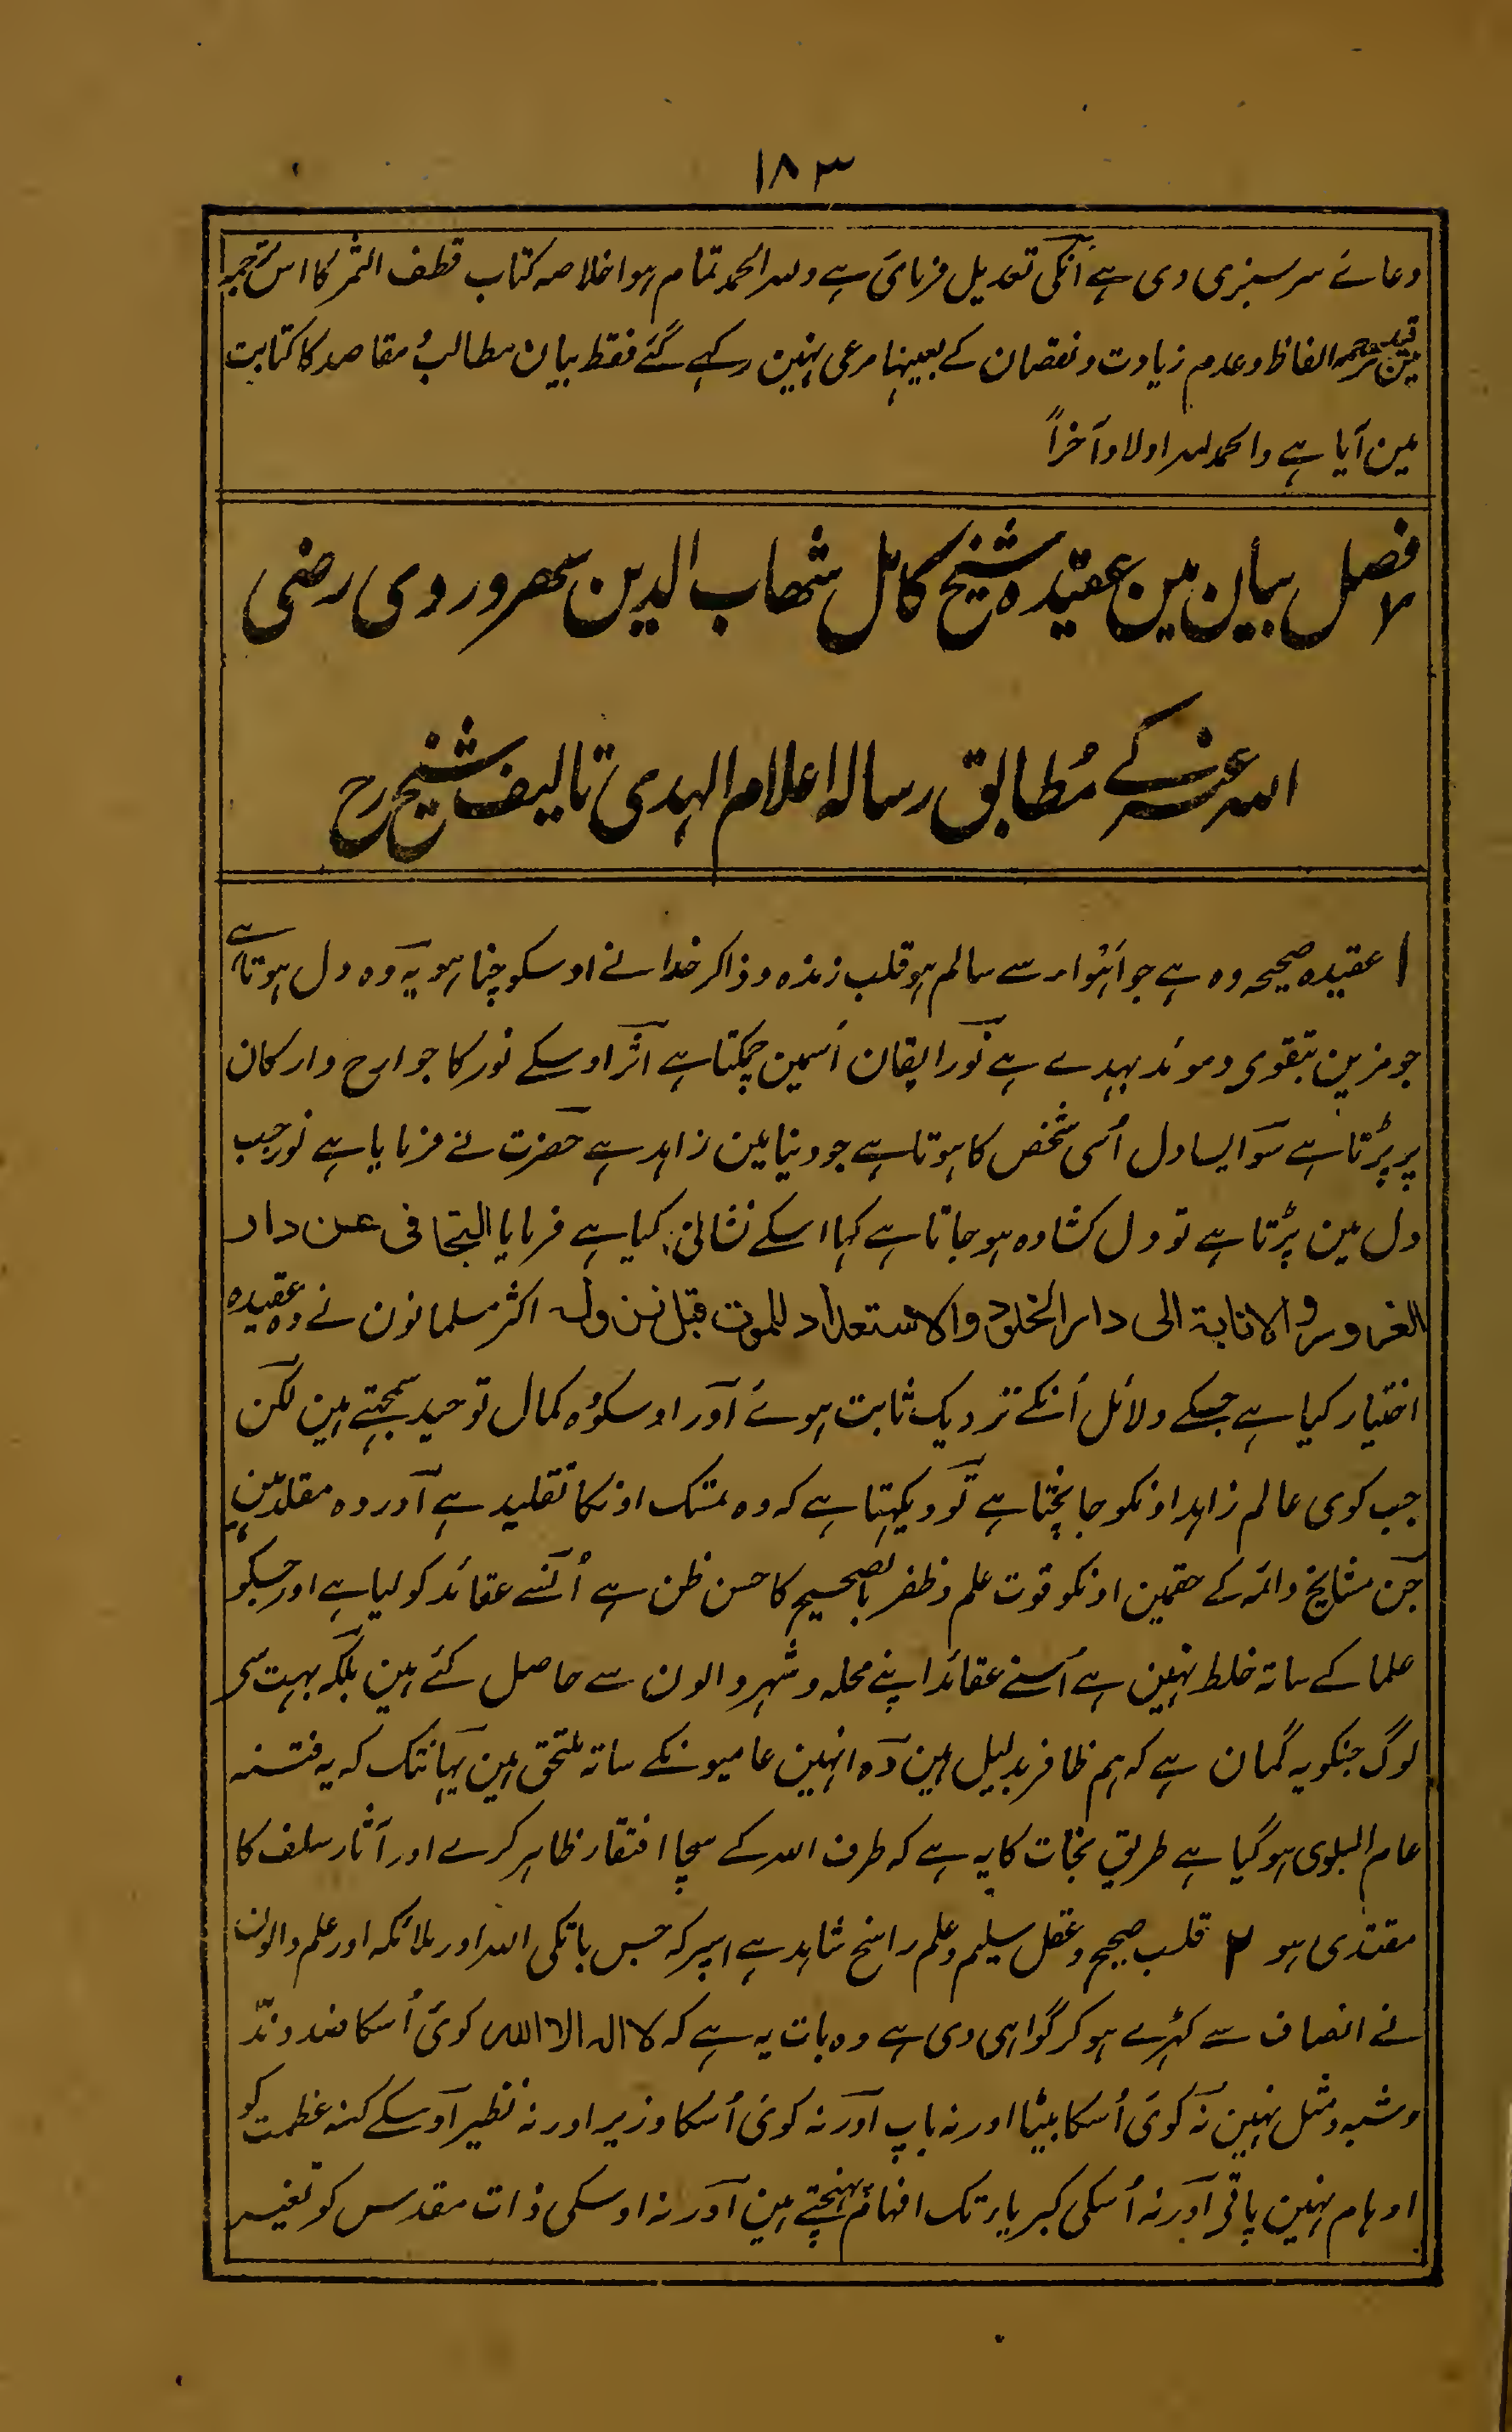 ۱۸۳
دعائے سرسبزی دی ہے اُنکی تعدیل فرمائی ہے وللہ الحمد تمام ہوا خلاصہ کتاب قطف الثمر کا اس ترجمہ
مین قید ترجمہ الفاظ و عدم زیادت و نقصان کے بعینہا مرعی نہین رکہے گئے فقط بیان مطالب و مقاصد کا کتابت
مین آیا ہے والحمد للہ اولا وآخراً
فصل بیان مین عقیدہ شیخ کامل شھاب الدین سھروردی رضی
اللہ عنہ کے مُطابق رسالہ اعلام الہدی تالیف شیخ رح
۱ عقیدہ صحیحہ وہ ہے جو اَہواء سے سالم ہو قلب زندہ و ذاکر خدا نے اوسکو چنا ہو یہ وہ دل ہوتا ہے
جو مزین بتقوی و موئد بہدے ہے نور ایقان اُسمین چمکتا ہے اثر اوسکے نور کا جوارح و ارکان
پر پڑتا ہے سو ایسا دل اُسی شخص کا ہوتا ہے جو دنیا مین زاہد ہے حضرت نے فرمایا ہے نور جب
دل مین پڑتا ہے تو دل کشادہ ہو جاتا ہے کہا اسکے نشانی کیا ہے فرمایا التجافی عن دار
الغرور والانابة الی دار الخلود والاستعداد للموت قبل نزولہ اکثر مسلمانون نے وہ عقیدہ
اختیار کیا ہے جسکے دلائل اُنکے نزدیک ثابت ہوئے اور اوسکو وہ کمال توحید سمجہتے ہین لکن
جب کوی عالم زاہد اونکو جانچتا ہے تو دیکہتا ہے کہ وہ تمسک اونکا تقلید ہے اور وہ مقلد ہین
جن مشایخ وائمہ کے حقمین اونکو قوت علم و ظفر بالصحیح کا حسن ظن ہے اُنسے عقائد کو لیا ہے اور جسکو
علما کے ساتہ خلط نہین ہے اُسنے عقائد اپنے محلہ و شہر والون سے حاصل کئے ہین بلکہ بہت سے
لوگ جنکو یہ گمان ہے کہ ہم ظافر بدلیل ہین وہ انہین عامیونکے ساتہ ملتحق ہین یہانتک کہ یہ فتنہ
عام البلوی ہو گیا ہے طریق نجات کا یہ ہے کہ طرف اللہ کے سچا افتقار ظاہر کرے اور آثار سلف کا
مقتدی ہو ۲ قلب صحیح و عقل سلیم و علم راسخ شاہد ہے اسپر کہ جس باتکی اللہ اور ملائکہ اور علم والون
نے انصاف سے کہڑے ہو کر گواہی دی ہے وہ بات یہ ہے کہ لا الہ الا اللہ کوئی اُسکا ضد و ندّ
و شبہ و مثل نہین نہ کوئی اُسکا بیٹا اور نہ باپ اور نہ کوئی اُسکا وزیر اور نہ نظیر اوسکے کنہ عظمت کو
اوہام نہین پاتے اور نہ اُسکی کبریاء تک افہام پہنچتے ہین اور نہ اوسکی ذات مقدس کو تغیر